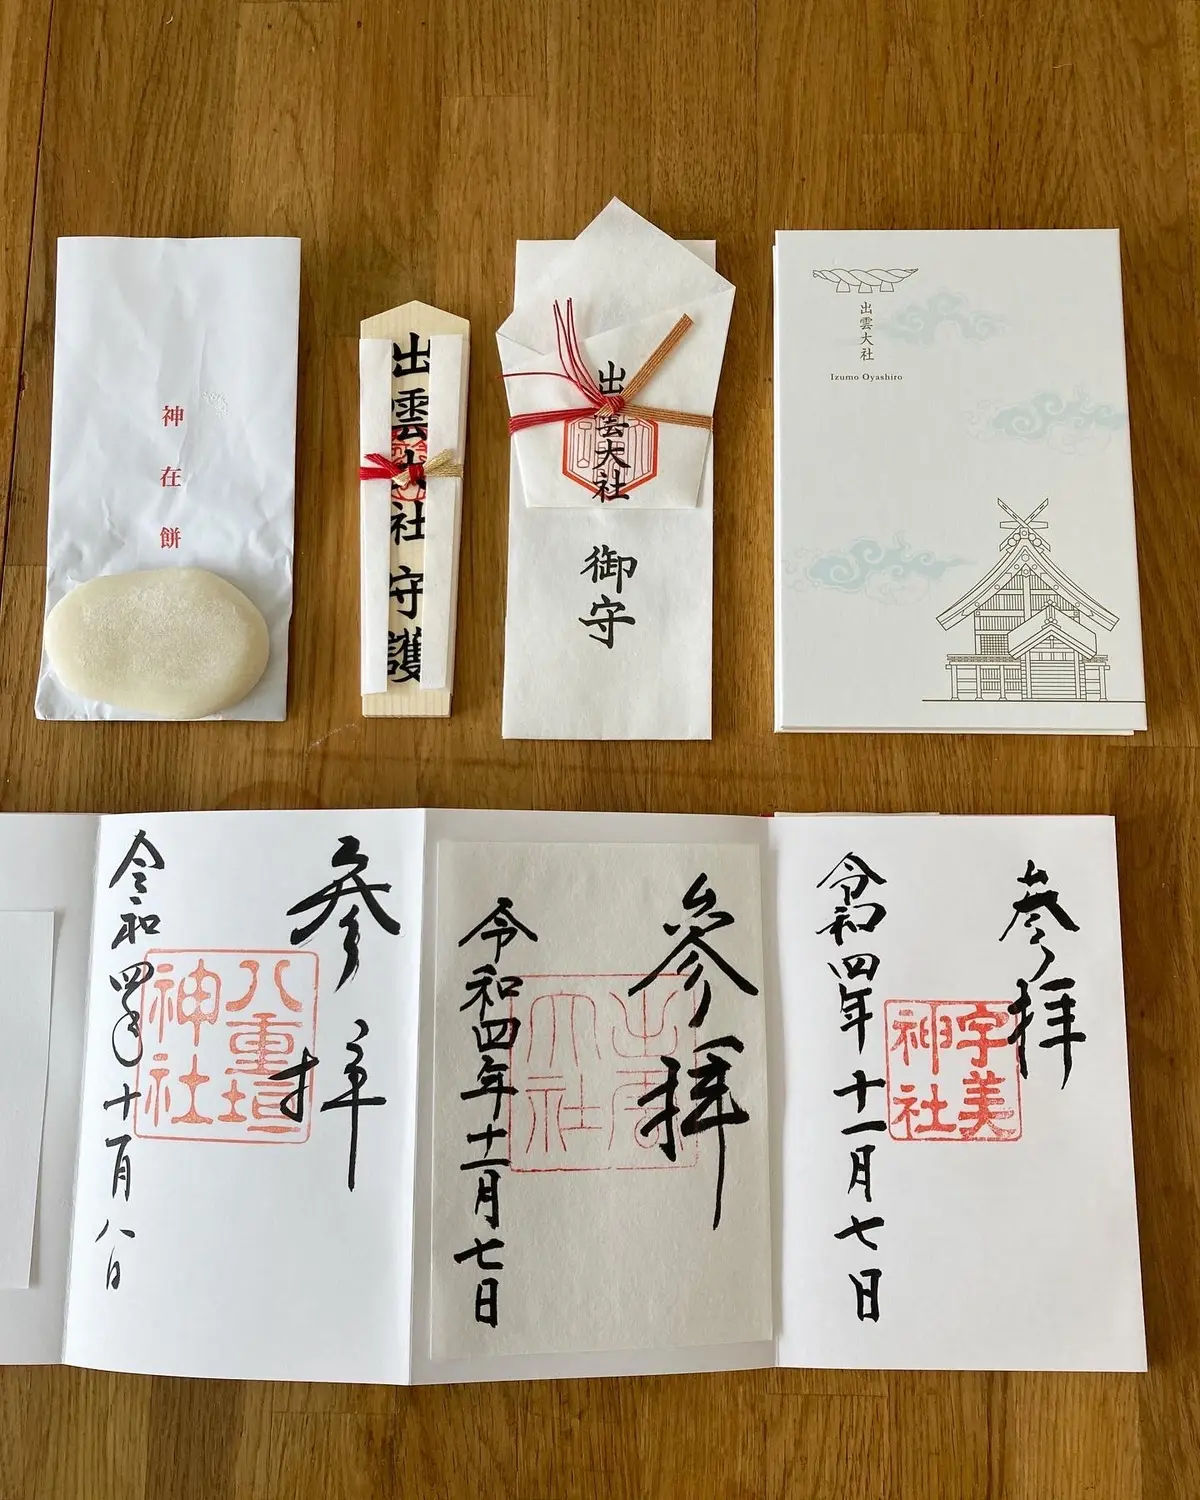 神在餅
出雲大社守護
出雲大社
御守
出雲大社
Izumo Oyashiro
参拝
八重垣
神社
令和四年十一月八日
參拜
大社
令和四年十一月七日
参拝
宇美
神社
令和四年十一月七日